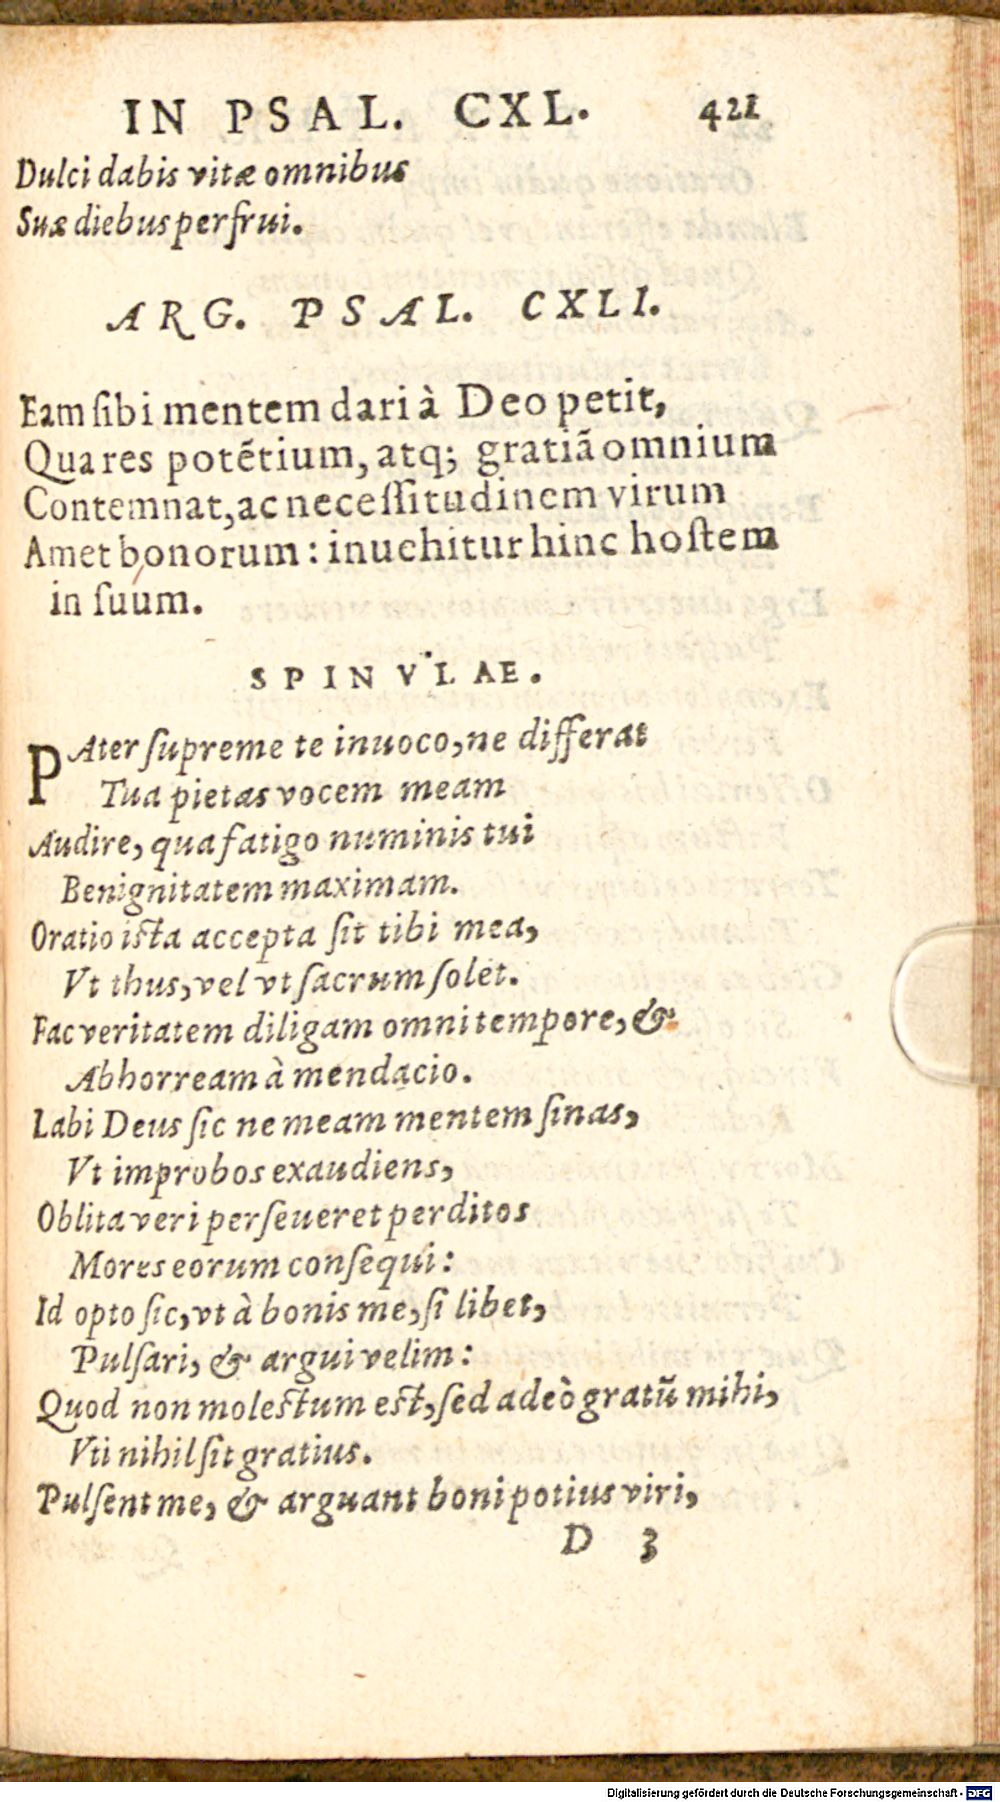 IN PSAL. CXL. 421
Dulci dabis vitæ omnibus
Suæ diebus perfrui.
ARG. PSAL. CXLI.
Eam ſibi mentem dari à Deo petit,
Qua res potẽtium, atq; gratiã omnium
Contemnat, ac neceſſitudinem virum
Amet bonorum: inuehitur hinc hoſtem
in ſuum.
SPINVLAE.
PAter ſupreme te inuoco, ne differat
Tua pietas vocem meam
Audire, qua fatigo numinis tui
Benignitatem maximam.
Oratio iſta accepta ſit tibi mea,
Vt thus, vel vt ſacrum ſolet.
Fac veritatem diligam omni tempore, &
Abhorream à mendacio.
Labi Deus ſic ne meam mentem ſinas,
Vt improbos exaudiens,
Oblita veri perſeueret perditos
Mores eorum conſequi:
Id opto ſic, vt à bonis me, ſi libet,
Pulſari, & argui velim:
Quod non moleſtum eſt, ſed adeò gratũ mihi,
Vti nihil ſit gratius.
Pulſent me, & arguant boni potius viri,
D 3
Digitalisierung gefördert durch die Deutsche Forschungsgemeinschaft - DFG